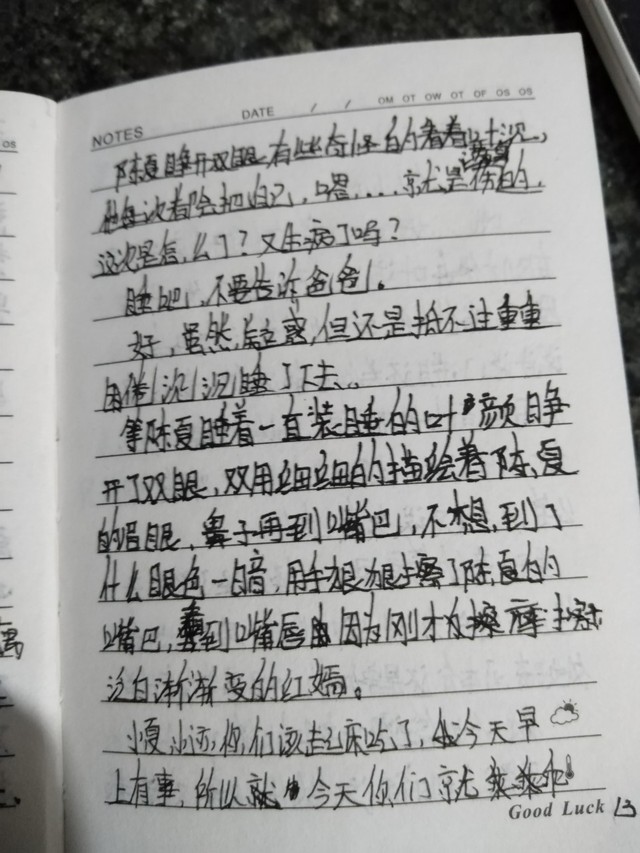 NOTES
DATE / /
OM OT OW OT OF OS OS
陈夏睁开双眼有些奇怪的看着叶沉,
他每次都会把自己,嗯....就是
这次是怎么了?又生病了吗?
睡吧,不要告诉爸爸。
好,虽然疑惑,但还是抵不住重重
困倦沉沉睡了下去..
等陈夏睡着一直装睡的叶 睁
开了双眼,双用细细的描绘着陈夏
的眉眼,鼻子再到嘴巴,不想,到了
什么眼色一暗,用手狠狠擦了陈夏的
嘴巴, 到嘴唇 因为刚才的摩擦
泛白渐渐变的红嫣。
小夏,小 你们该起床吃了,今天早
上有事,所以就 今天你们就
Good Luck
os